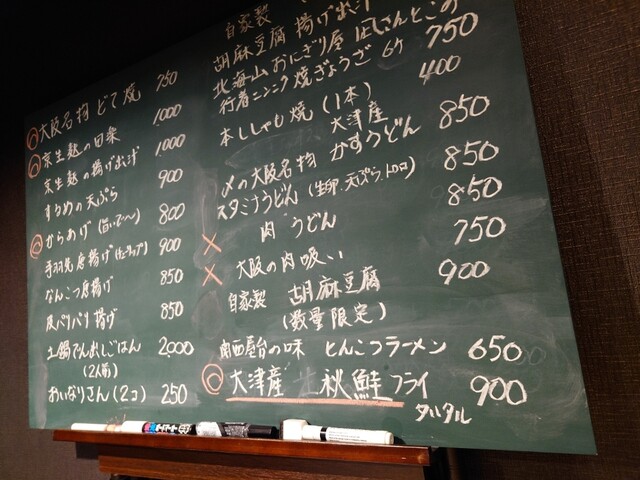 大阪名物 どて焼 750
京生麩の田楽 1,000
京生麩の揚げ出汁 1,000
するめの天ぷら 900
からあげ (旨いで〜) 800
手羽先唐揚げ 900
なんこつ唐揚げ 850
皮パリパリ揚げ 850
土鍋でだし出しごはん 2,000
(2人前)
おいなりさん (2コ) 250
自家製
胡麻豆腐 揚げ出汁
北海山 おにぎり屋
行者ニンニク 焼ぎょうざ 6ケ 750
本ししゃも焼 (1本) 400
大津産
〆の大阪名物 かすうどん 850
スタミナうどん (生卵、天ぷら、トロロ) 850
肉うどん 850
大阪の肉吸い 750
自家製 胡麻豆腐 900
(数量限定)
関西屋台の味 とんこつラーメン 650
大津産 秋鮭フライ 900
タルタル